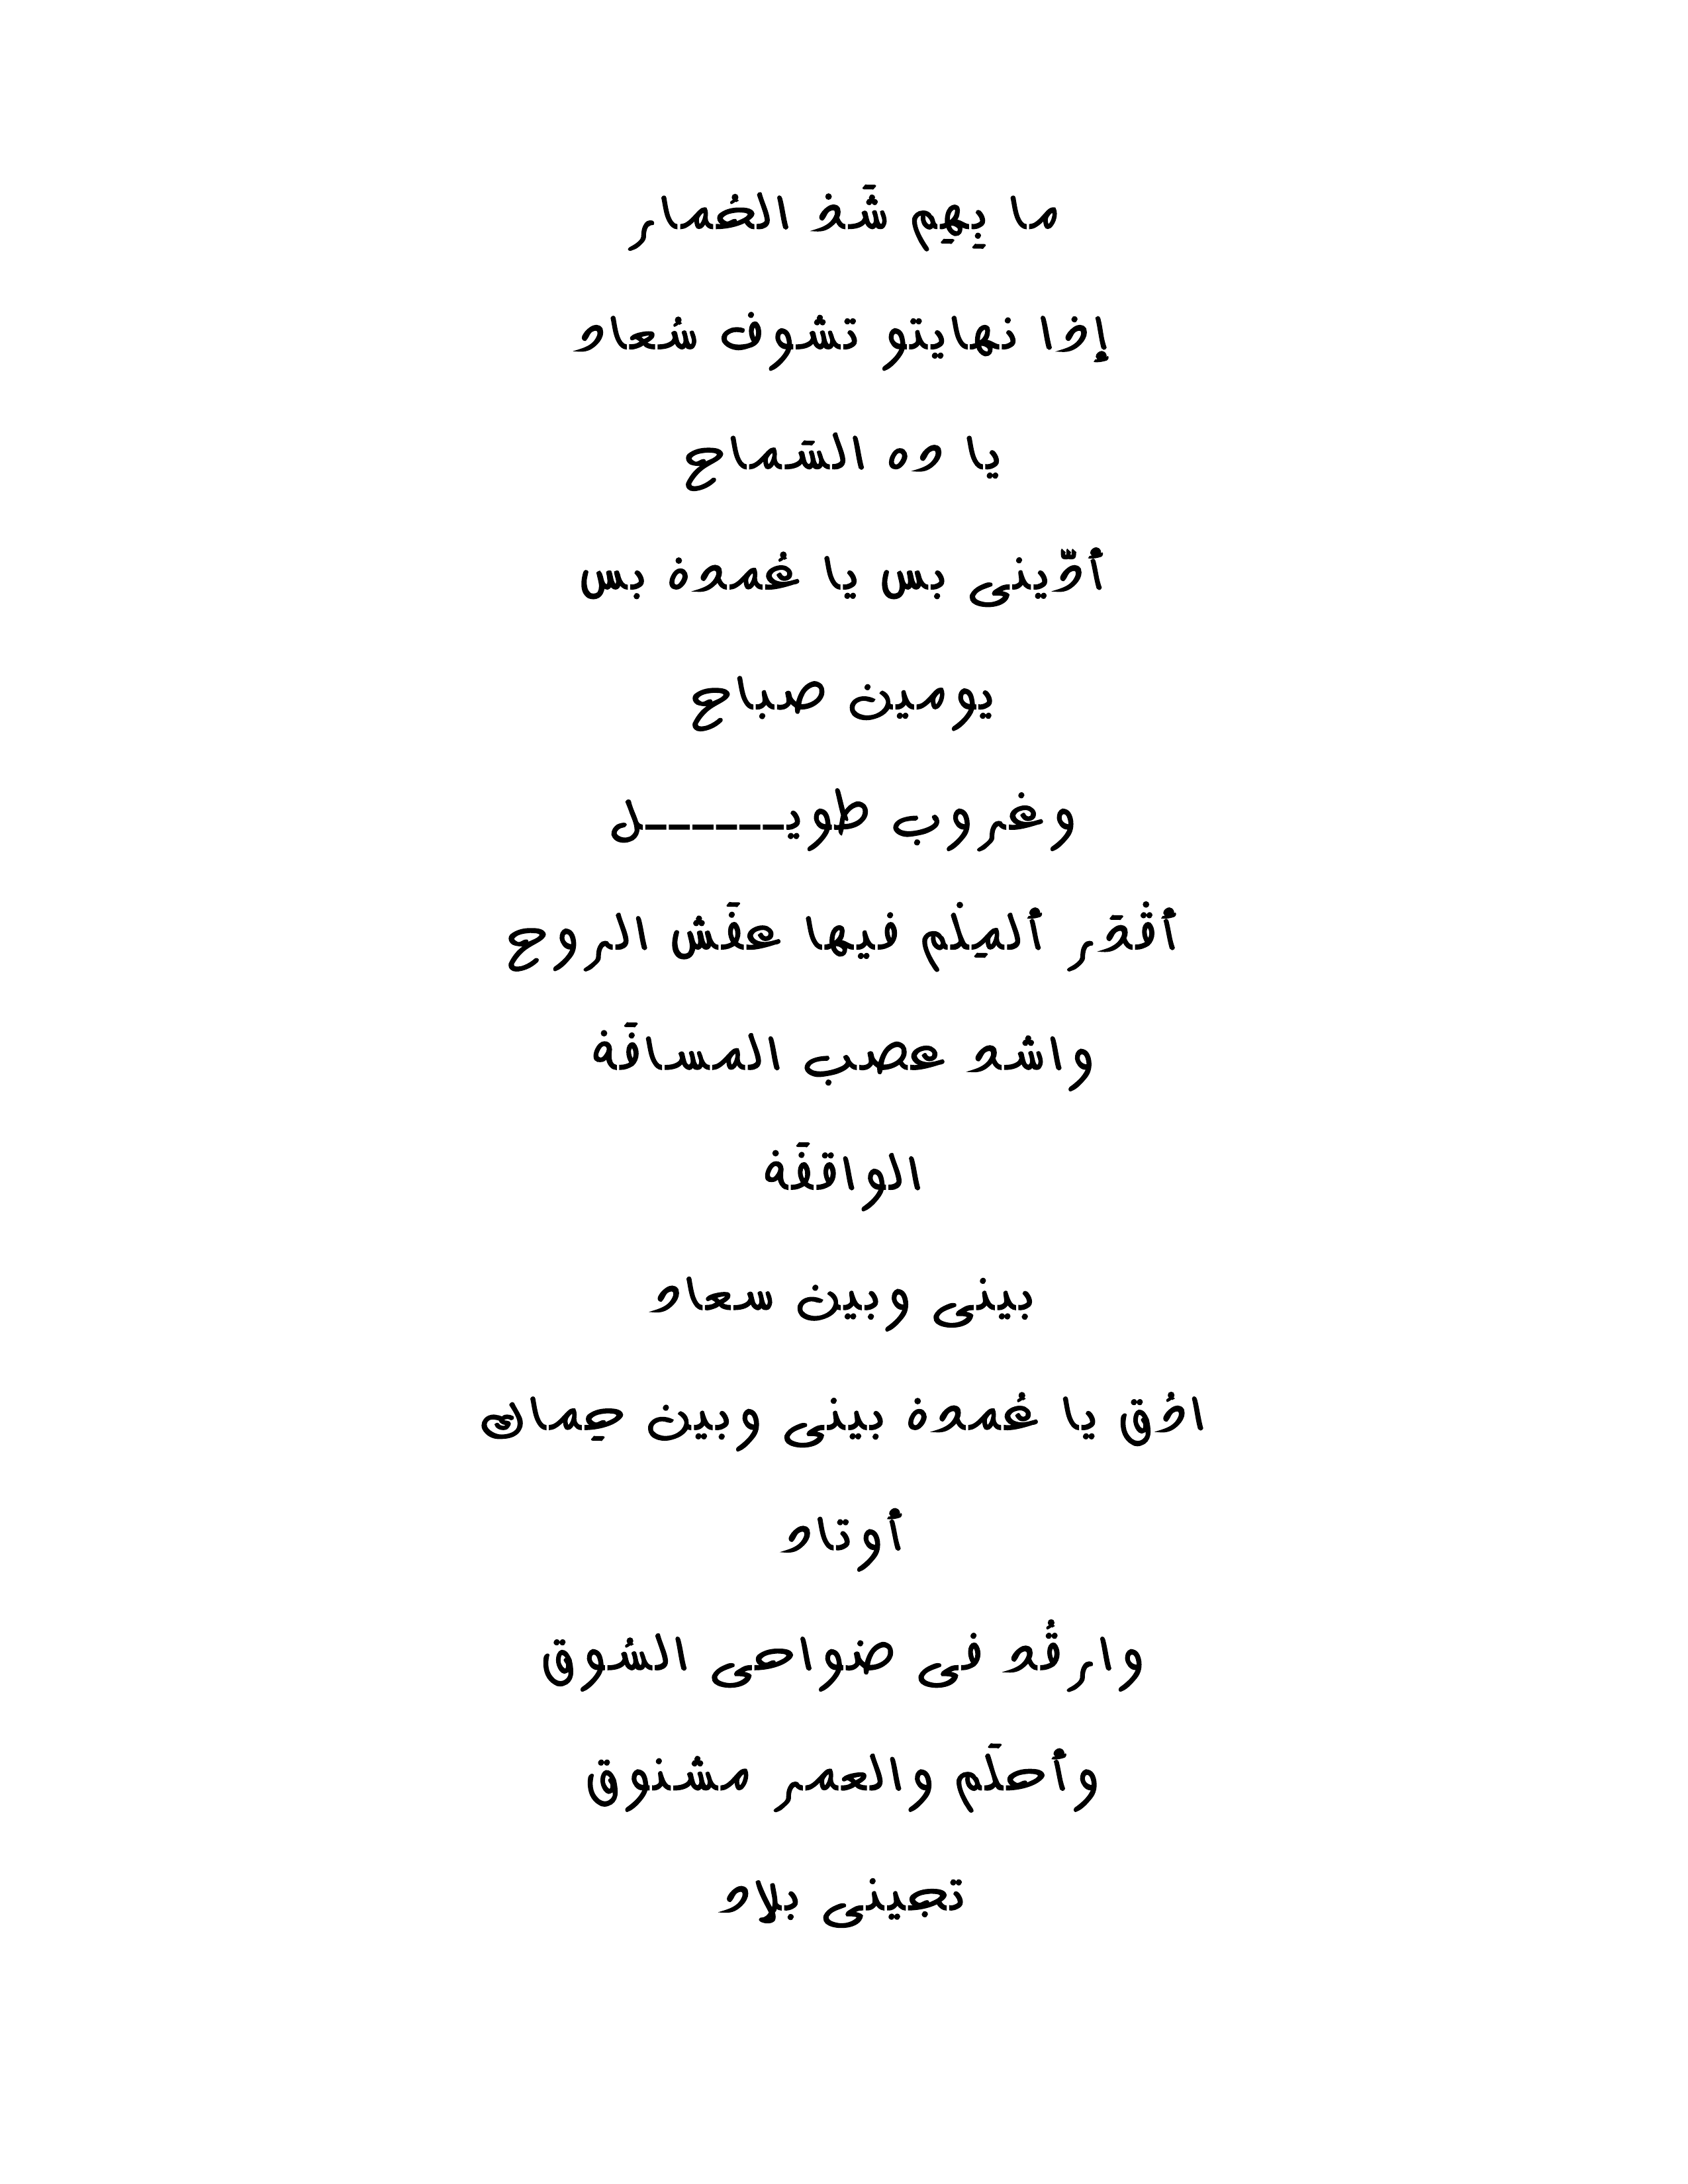 ما بِهِم شَد الخُمار
إذا نهايتو تشوف سُعاد
يا ده السَماح
أدّينى بس يا عُمدة بس
يومين صباح
وغروب طويــــــل
أقْدَر ألمِلْم فيها عفَش الروح
واشد عصب المسافَة
الواقفَة
بينى وبين سعاد
ادُق يا عُمدة بينى وبين حِماك
أوتاد
وارقُد فى ضواحى السُوق
وأحلَم والعمر مشنوق
تجينى بلاد